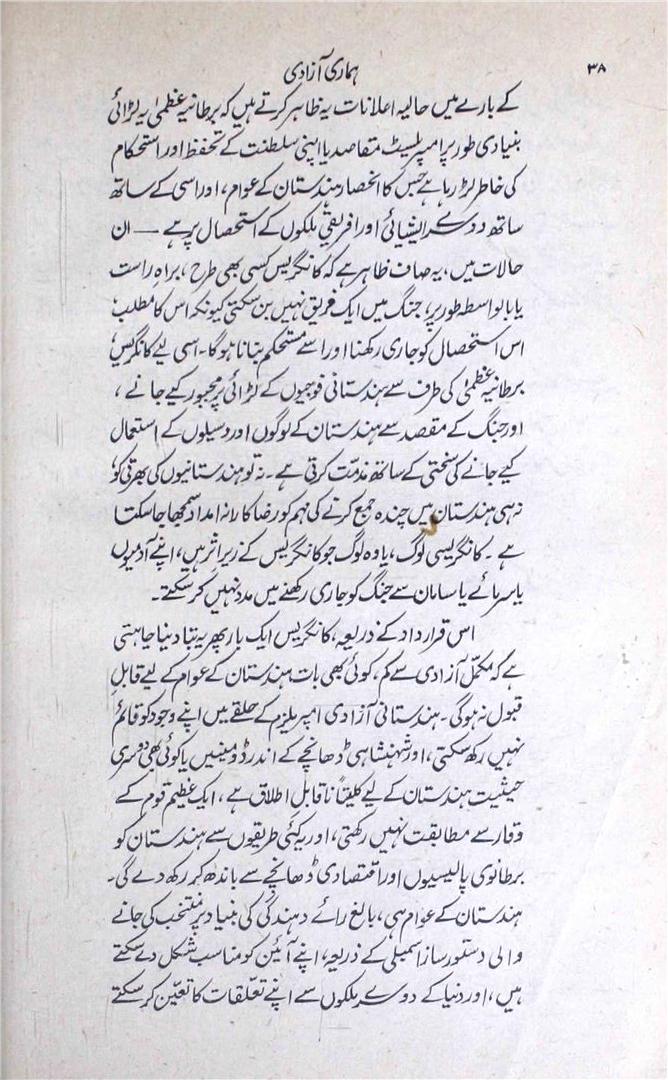 ۳۸
ہماری آزادی
کے بارے میں حالیہ اعلانات یہ ظاہر کرتے ہیں کہ برطانیہ عظمیٰ یہ لڑائی
بنیادی طور پر امپیریلسٹ مقاصد یا اپنی سلطنت کے تحفظ اور استحکام
کی خاطر لڑ رہا ہے جس کا انحصار ہندستان کے عوام، اور اسی کے ساتھ
ساتھ دوسرے ایشیائی اور افریقی ملکوں کے استحصال پر ہے — ان
حالات میں، یہ صاف ظاہر ہے کہ کانگریس کسی بھی طرح، براہِ راست
یا بالواسطہ طور پر، جنگ میں ایک فریق نہیں بن سکتی کیونکہ اس کا مطلب
اس استحصال کو جاری رکھنا اور اسے مستحکم بنانا ہوگا۔ اسی لیے کانگریس،
برطانیہ عظمیٰ کی طرف سے ہندستانی فوجیوں کے لڑائی پر مجبور کیے جانے،
اور جنگ کے مقصد سے ہندستان کے لوگوں اور وسیلوں کے استعمال
کیے جانے کی سختی کے ساتھ مذمّت کرتی ہے۔ نہ تو ہندستانیوں کی بھرتی کو،
نہ ہی ہندستان میں چندہ جمع کرنے کی مہم کو رضا کارانہ امداد سمجھا جا سکتا
ہے۔ کانگریسی لوگ، یا وہ لوگ جو کانگریس کے زیر اثر ہیں، اپنے آدمیوں
یا سرمائے یا سامان سے جنگ کو جاری رکھنے میں مدد نہیں کر سکتے۔
اس قرار داد کے ذریعہ، کانگریس ایک بار پھر یہ بتا دینا چاہتی
ہے کہ مکمّل آزادی سے کم، کوئی بھی بات ہندستان کے عوام کے لیے قابلِ
قبول نہ ہوگی۔ ہندستانی آزادی امپریلزم کے حلقے میں اپنے وجود کو قائم
نہیں رکھ سکتی، اور شہنشاہی ڈھانچے کے اندر ڈومینین یا کوئی بھی دوسری
حیثیت ہندستان کے لیے کلیتاً ناقابل اطلاق ہے، ایک عظیم قوم کے
وقار سے مطابقت نہیں رکھتی، اور یہ کئی طریقوں سے ہندستان کو
برطانوی پالیسیوں اور اقتصادی ڈھانچے سے باندھ کر رکھ دے گی۔
ہندستان کے عوام ہی، بالغ رائے دہندگی کی بنیاد پر منتخب کی جانے
والی دستور ساز اسمبلی کے ذریعہ، اپنے آئین کو مناسب شکل دے سکتے
ہیں، اور دنیا کے دوسرے ملکوں سے اپنے تعلّقات کا تعیّن کر سکتے